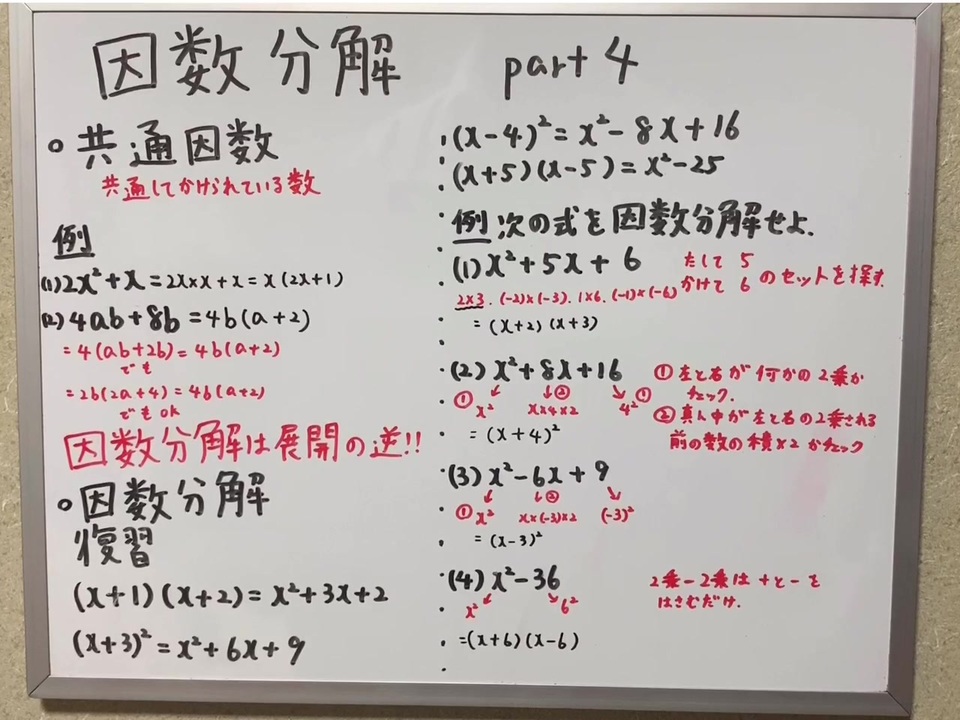 因数分解 part 4
○共通因数
共通してかけられている数
例
(1) 2x²+x = 2x×x+x = x(2x+1)
(2) 4ab+8b = 4b(a+2)
= 4(ab+2b) = 4b(a+2)
でも
= 2b(2a+4) = 4b(a+2)
でもok
因数分解は展開の逆!!
○因数分解
復習
(x+1)(x+2) = x²+3x+2
(x+3)² = x²+6x+9
(x-4)² = x²-8x+16
(x+5)(x-5) = x²-25
例 次の式を因数分解せよ.
(1) x²+5x+6
たして 5
かけて 6 のセットを探す.
2×3. (-2)×(-3). 1×6. (-1)×(-6)
= (x+2)(x+3)
(2) x²+8x+16
① x² ② x×4×2 4² ①
= (x+4)²
① 左と右が何かの2乗か
チェック.
② 真ん中が左と右の2乗される
前の数の積×2かチェック
(3) x²-6x+9
① x² ② x×(-3)×2 (-3)²
= (x-3)²
(4) x²-36
x² 6²
=(x+6)(x-6)
2乗-2乗は+と-を
はさむだけ.